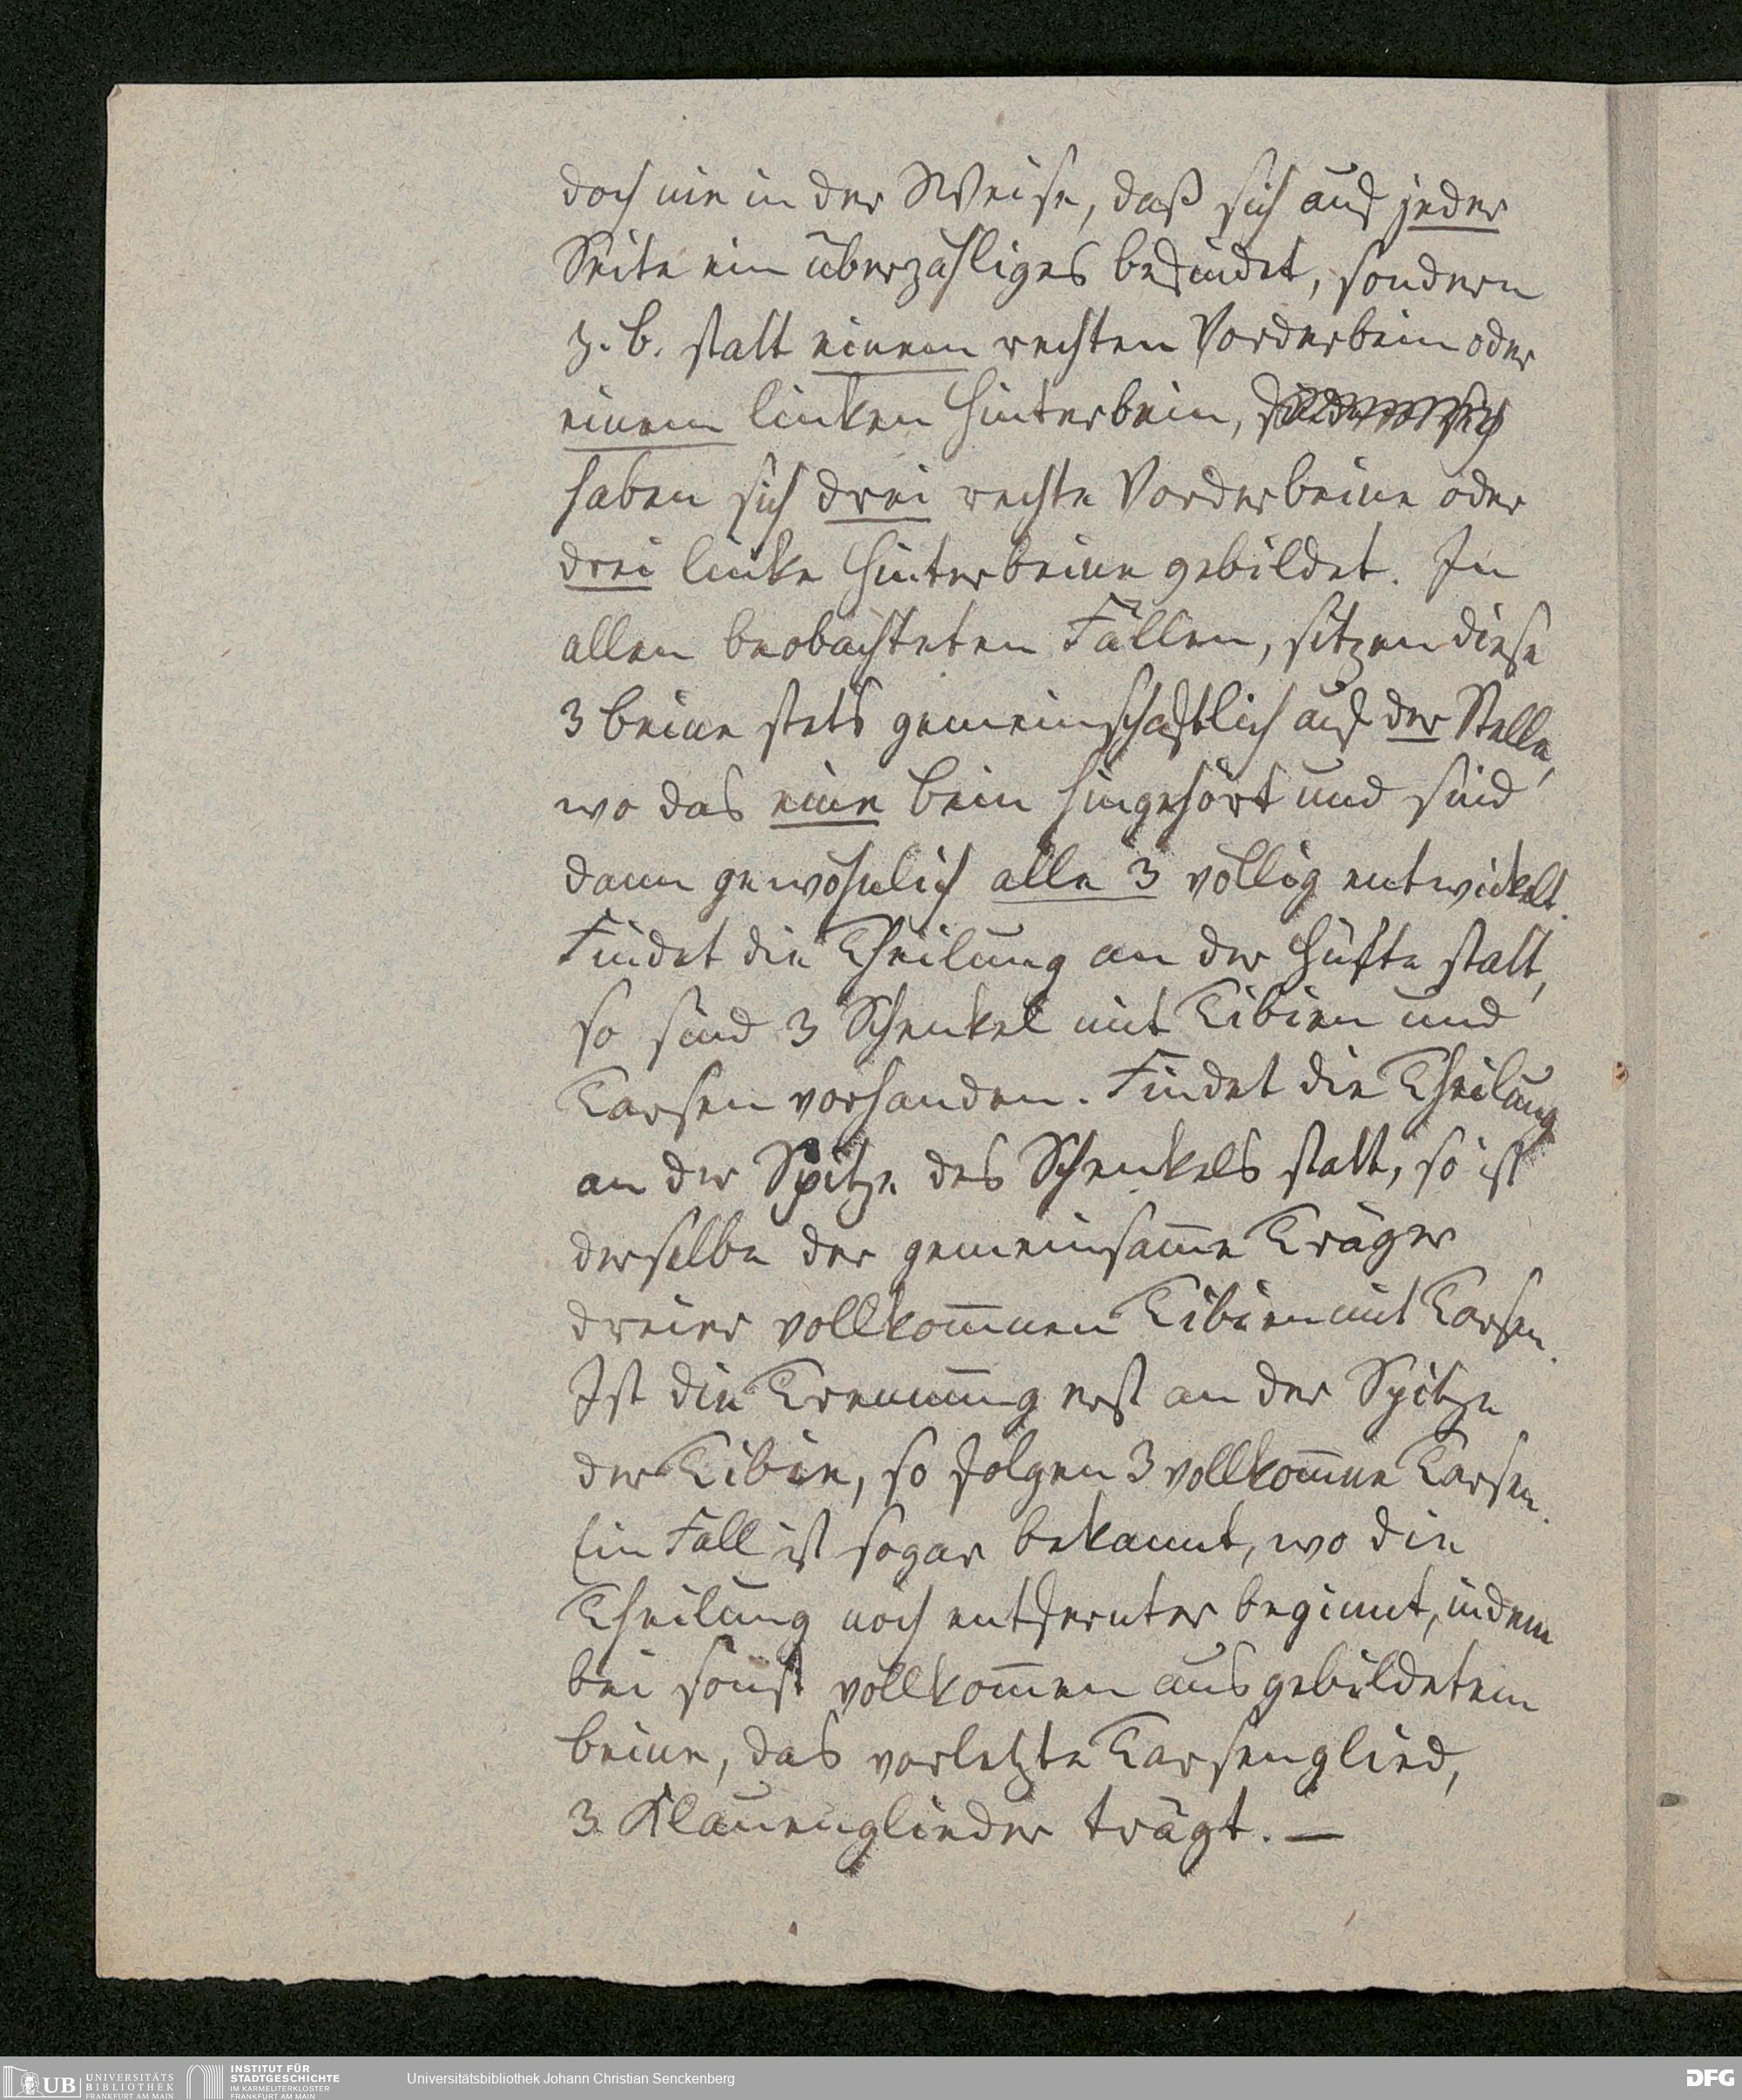 doch nie in der Weise, daß sich auf jeder
Seite ein überzähliges befindet, sondern
z. b. statt einem rechten Vorderbein oder
einem linken Hinterbein,
haben sich drei rechte Vorderbeine oder
drei linke Hinterbeine gebildet. In
allen beobachteten Fällen, sitzen diese
3 beine stets gemeinschaftlich auf der Stelle,
wo das eine bein hingehört und sind
dann gewöhnlich alle 3 völlig entwickelt.
Findet die Theilung an der Hüfte statt,
so sind 3 Schenkel mit Tibien und
Tarsen vorhanden. Findet die Theilung
an der Spitze des Schenkels statt, so ist
derselbe der gemeinsam̅e Träger
dreier vollkom̅nen Tibien mit Tarsen.
Ist die Trennung erst an der Spitze
der Tibie, so folgen 3 vollkom̅ne Tarsen.
Ein Fall ist sogar bekannt, wo die
Theilung noch entfernter beginnt, indem
bei sonst vollkom̅en ausgebildetem
beine, das vorletzte Tarsenglied,
3 Klauenglieder trägt. —
UB UNIVERSITÄTS
BIBLIOTHEK
FRANKFURT AM MAIN
INSTITUT FÜR
STADTGESCHICHTE
IM KARMELITERKLOSTER
FRANKFURT AM MAIN
Universitätsbibliothek Johann Christian Senckenberg
DFG